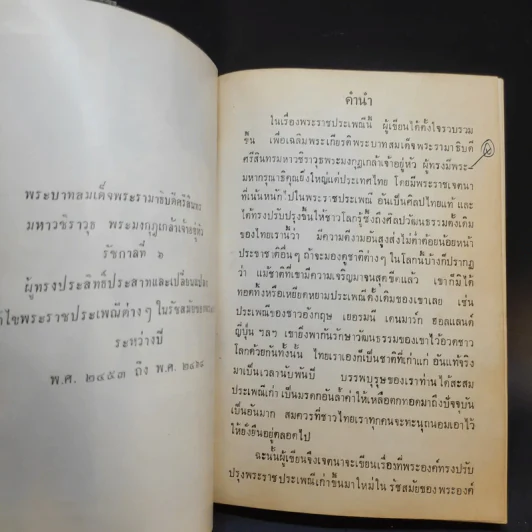 พระบาทสมเด็จพระรามาธิบดีศรีสินทร
มหาวชิราวุธ พระมงกุฎเกล้าเจ้าอยู่หัว
รัชกาลที่ ๖
ผู้ทรงประสิทธิ์ประสาทและเปลี่ยนแปลง
ไขพระราชประเพณีต่าง ๆ ในรัชสมัยของ
ระหว่างปี
พ.ศ. ๒๔๕๓ ถึง พ.ศ. ๒๔๖๘
คำนำ
ในเรื่องพระราชประเพณีนี้ ผู้เขียนได้ตั้งใจรวบรวม
ขึ้น เพื่อเฉลิมพระเกียรติพระบาทสมเด็จพระรามาธิบดี
ศรีสินทรมหาวชิราวุธพระมงกุฎเกล้าเจ้าอยู่หัว ผู้ทรงมีพระ
มหากรุณาธิคุณยิ่งใหญ่แด่ประเทศไทย โดยมีพระราชเจตนา
ที่เน้นหนักไปในพระราชประเพณี อันเป็นศิลปไทยแท้ และ
ได้ทรงปรับปรุงขึ้นให้ชาวโลกรู้ซึ้งถึงศิลปวัฒนธรรมดั้งเดิม
ของไทยเรานี้ว่า มีความดีงามอันสูงส่งไม่ต่ำต้อยน้อยหน้า
ประชาชาติอื่นๆ ถ้าจะมองดูชาติต่างๆ ในโลกนี้บ้างก็ปรากฏ
ว่า แม้ชาติที่เขามีความเจริญมาจนสุดขีดแล้ว เขาก็มิได้
ทอดทิ้งหรือเหยียดหยามประเพณีดั้งเดิมของเขาเลย เช่น
ประเพณีของชาวอังกฤษ เยอรมนี เดนมาร์ก ฮอลแลนด์
ญี่ปุ่น ฯลฯ เขายิ่งพากันรักษาวัฒนธรรมของเขาไว้อวดชาว
โลกด้วยกันทั้งนั้น ไทยเราเองก็เป็นชาติที่เก่าแก่ อันแท้จริง
มาเป็นเวลานับพันปี บรรพบุรุษของเราท่านได้สะสม
ประเพณีเก่า เป็นมรดกอันล้ำค่าให้เหลือตกทอดมาถึงปัจจุบัน
เป็นอันมาก สมควรที่ชาวไทยเราทุกคนจะทะนุถนอมเอาไว้
ให้ยั่งยืนอยู่ตลอดไป
ฉะนั้นผู้เขียนจึงเจตนาจะเขียนเรื่องที่พระองค์ทรงปรับ
ปรุงพระราชประเพณีเก่าขึ้นมาใหม่ในรัชสมัยของพระองค์